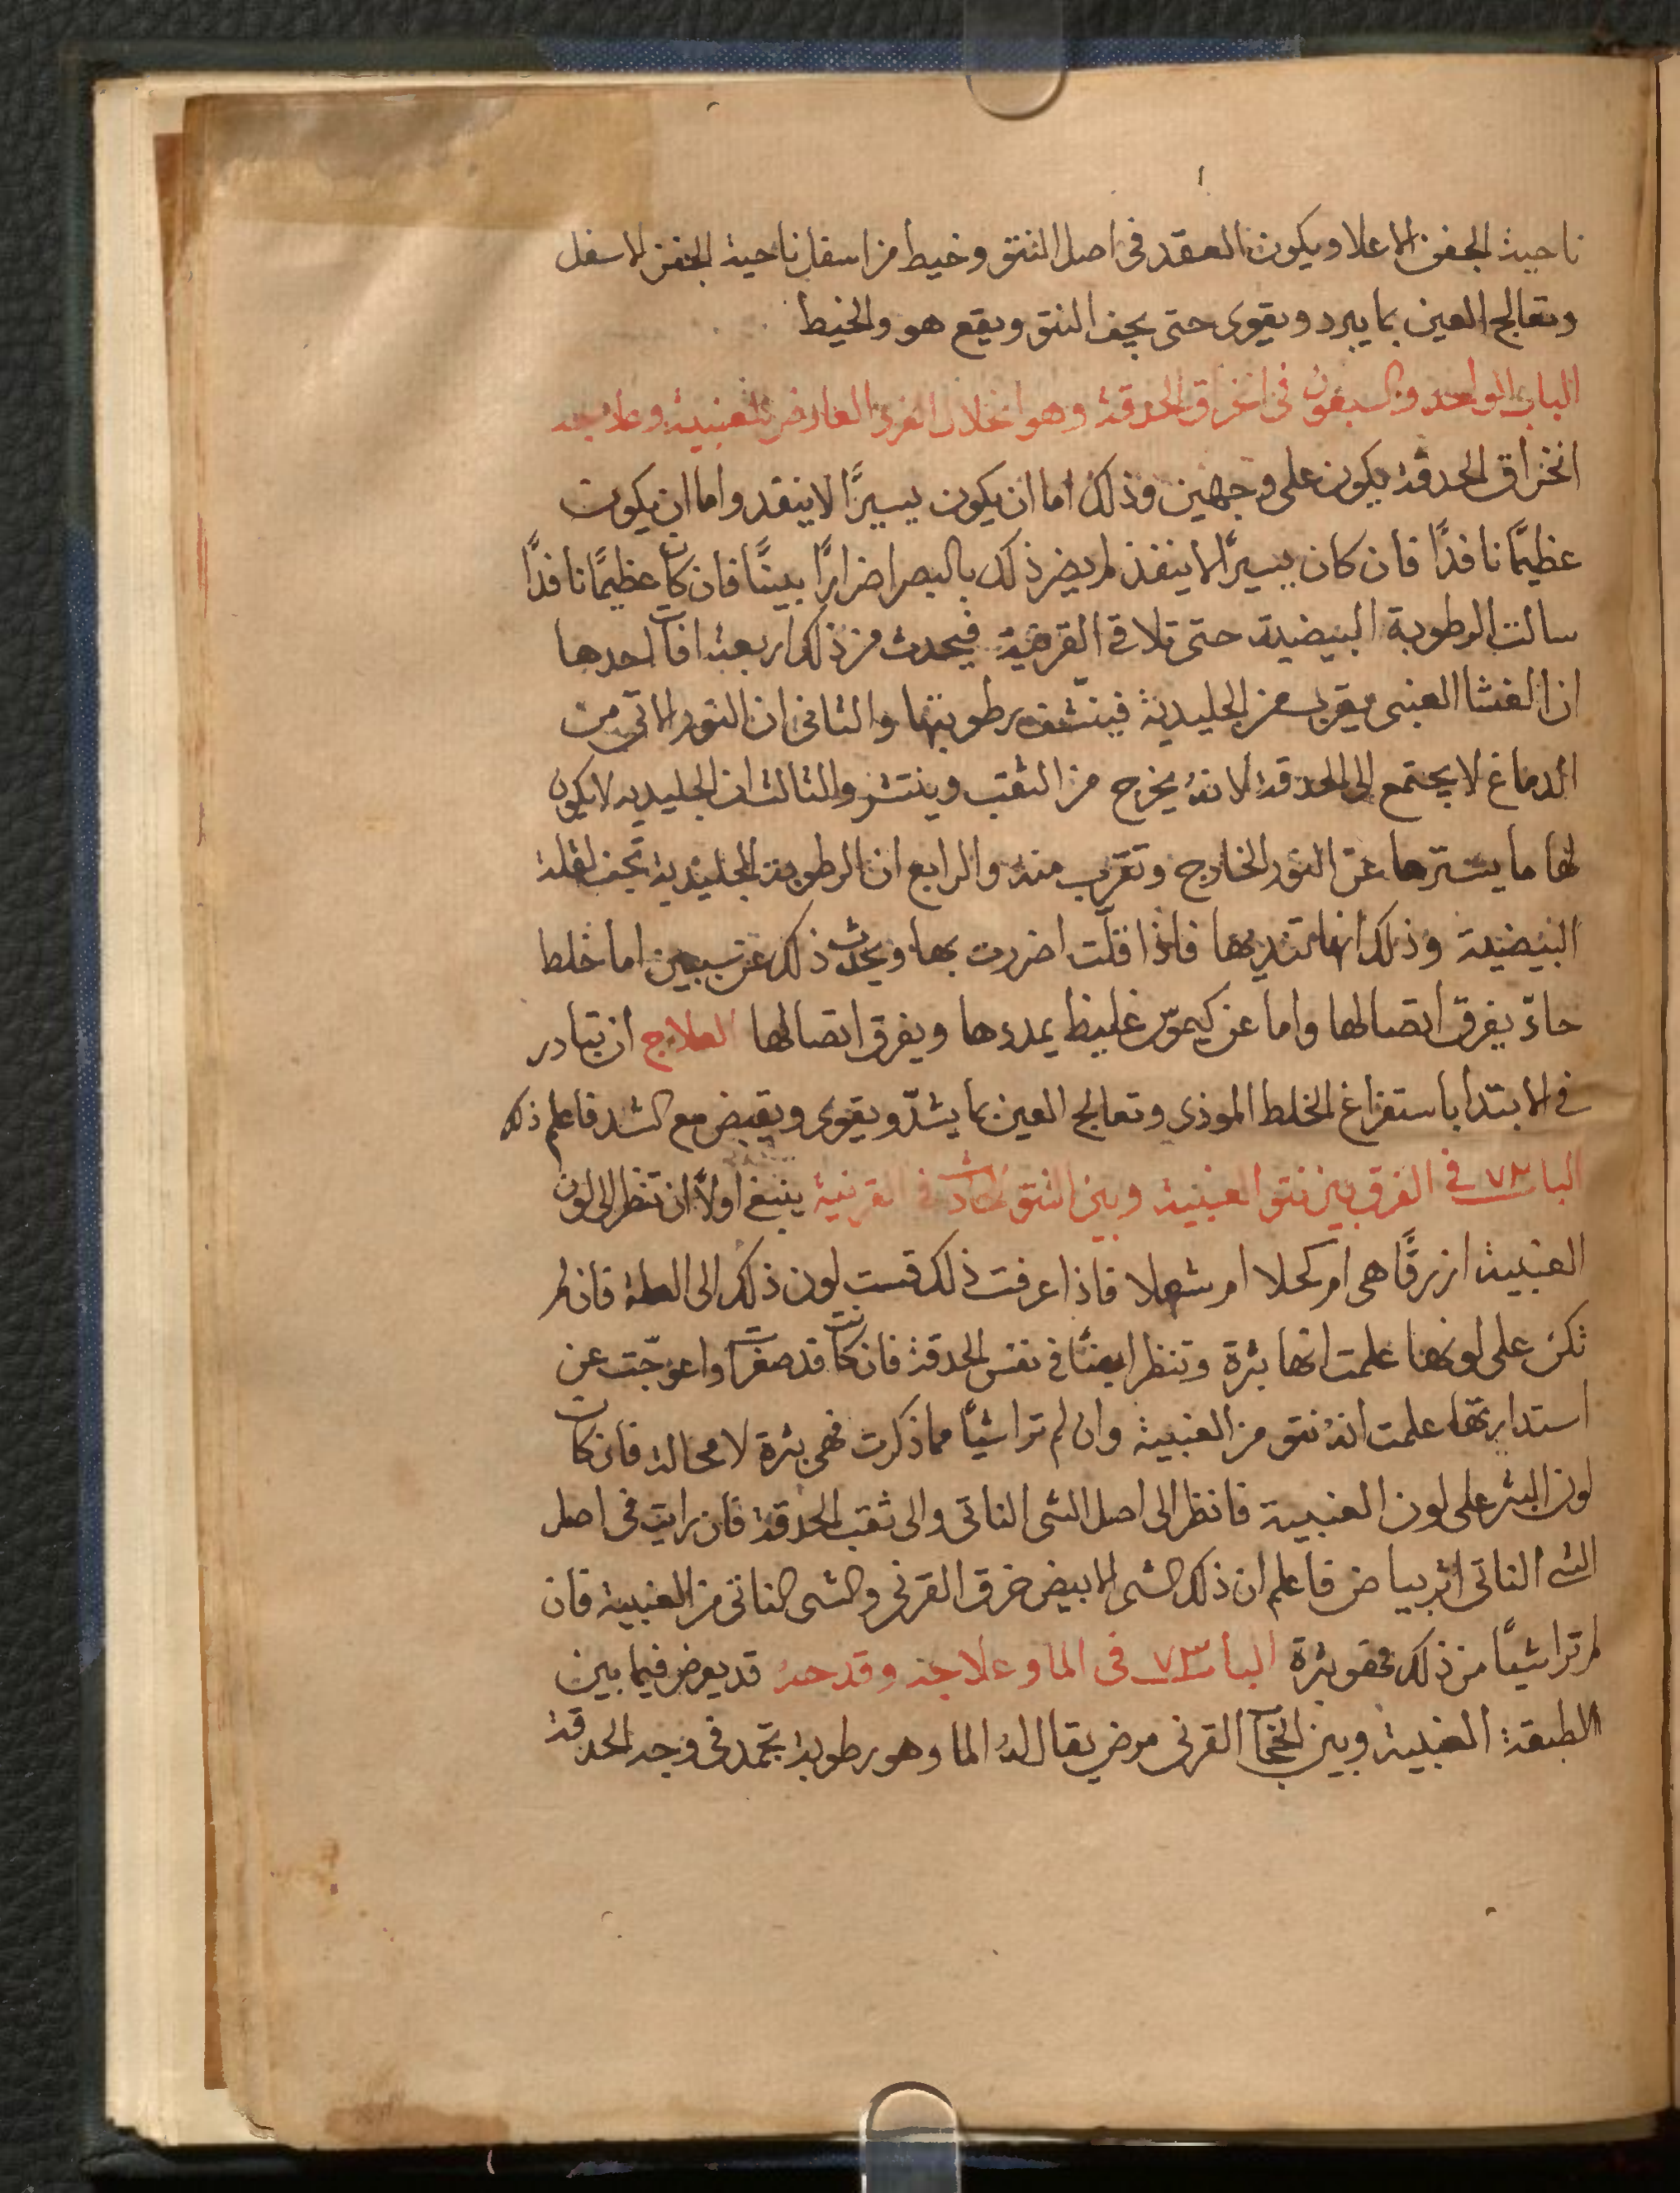 ناحية الجفن الاعلا ويكون العقد فى اصل النتو وخيط من اسفل ناحية الجفن الاسفل
وتعالج العين بما يبرد ويقوى حتى يجف النتو ويقع هو والخيط
الباب الواحد والسبعون فى انخراق الحدقة وهو انحلال الفرد العارض للعنبية وعلاجه
انخراق الحدقة يكون على وجهين وذلك اما ان يكون يسيرًا لا ينفد واما ان يكون
عظيمًا نافدًا فان كان يسيرًا لا ينفذ لم يضر ذلك بالبصر اضرارًا بينًا فان كان عظيمًا نافدًا
سالت الرطوبة البيضية حتى تلاقى القرنية فيحدث من ذلك اربعة افات احدها
ان الغشا العنبى يقرب من الجليدية فينشف رطوبتها والثانى ان النور الاتى من
الدماغ لا يجتمع الى الحدقة لانهُ يخرج من الثقب وينتشر والثالث ان الجليديه لا يكون
لها ما يسترها عن النور الخارج وتقرب منه والرابع ان الرطوبة الجليدية تجف لقلة
البيضية وذلك انها تنديها فاذا قلّت اضررت بها ويحدث ذلك عن سببين اما خلط
حادّ يفرق اتصالها واما عن كيموس غليظ يمددها ويفرق اتصالها العلاج ان تبادر
فى الابتدا باستفراغ الخلط الموذى وتعالج العين بما يشدّ ويقوى ويقبض مع الشد فاعلم ذلك
الباب ٧٢ فى الفرق بين نتو العنبية وبين النتو الحادث فى القرنية ينبغى اولاً ان تنظر الى لون
العنبية ازرقًا هى ام كحلا ام شهلا فاذا عرفت ذلك قست لون ذلك الى العلة فان لم
تكن على لونها علمت انها بثرة وتنظر ايضًا فى نفس الحدقة فان كانت قد صغرت واعوجّت عن
استدارتها علمت انهُ نتو من العنبية وان لم ترا شيًا مما ذكرت فهى بثرة لا محالة فان كانت
لون البثر على لون العنبية فانظر الى اصل الشى الناتى والى ثقب الحدقة فان رايت فى اصل
الشى الناتى اثر بياض فاعلم ان ذلك الشى الابيض خرق القرنى والشى الناتى من العنبية فان
لم ترا شيًا من ذلك فهو بثرة الباب ٧٣ فى الما وعلاجه وقدحهُ قد يعرض فيما بين
الطبقة العنبية وبين الحجاب القرنى مرض يقال لهُ الما وهو رطوبة تجمد فى وجه الحدقة